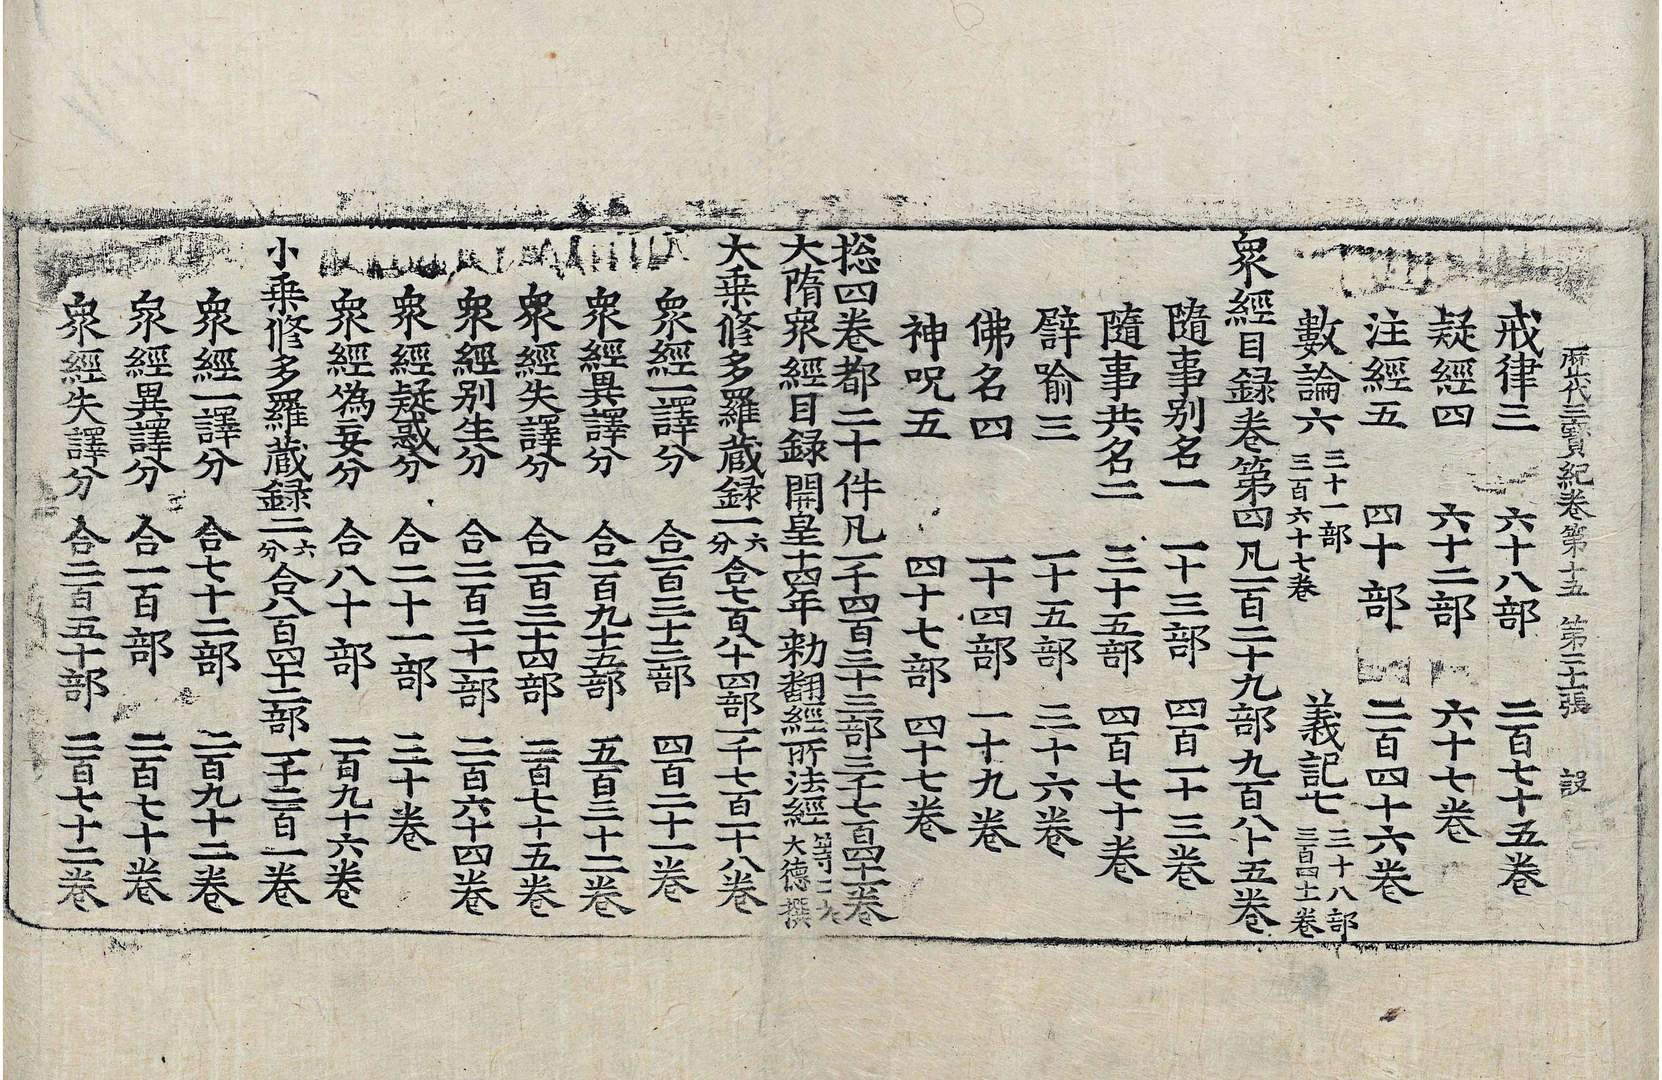 歷代三寶紀卷第十五 第二十張 設
戒律三 六十八部 二百七十五卷
疑經四 六十二部 六十七卷
注經五 四十部 二百四十六卷
數論六 三十一部 三百六十七卷 義記七 三十八部 三百四十卷
衆經目録卷第四凡一百二十九部九百八十五卷
隨事別名一 一十三部 四百一十三卷
隨事共名二 三十五部 四百七十卷
譬喻三 一十五部 三十六卷
佛名四 一十四部 一十九卷
神呪五 四十七部 四十七卷
捴四卷都二十件凡一千四百三十三部三千七百四十一卷
大隋衆經目録開皇十四年勑翻經所法經等二大德撰
大乗修多羅蔵録一六分合七百八十四部一千七百一十八卷
衆經一譯分 合一百三十三部 四百二十一卷
衆經異譯分 合一百九十五部 五百三十二卷
衆經失譯分 合一百三十四部 二百七十五卷
衆經別生分 合二百二十一部 二百六十四卷
衆經疑惑分 合二十一部 三十卷
衆經僞妄分 合八十部 一百九十六卷
小乗修多羅蔵録二六分合八百四十二部一千二百一卷
衆經一譯分 合七十二部 二百九十二卷
衆經異譯分 合一百部 二百七十卷
衆經失譯分 合二百五十部 二百七十二卷